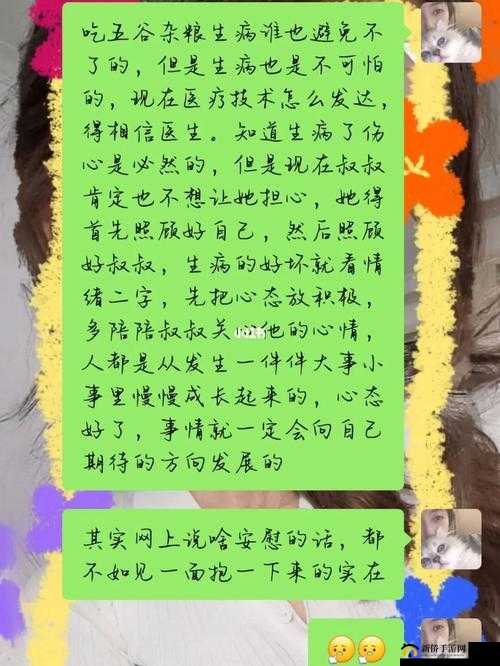 吃五谷杂粮生病谁也避免不
了的，但是生病也是不可怕
的，现在医疗技术怎么发达，
得相信医生。知道生病了伤
心是必然的，但是现在叔叔
肯定也不想让她担心，她得
首先照顾好自己，然后照顾
好叔叔，生病的好坏就看情
绪二字，先把心态放积极，
多陪陪叔叔关 他的心情，
小红书
人都是从发生一件件大事小
事里慢慢成长起来的，心态
好了，事情就一定会向自己
期待的方向发展的
其实网上说啥安慰的话，都
不如见一面抱一下来的实在
新侨手游网